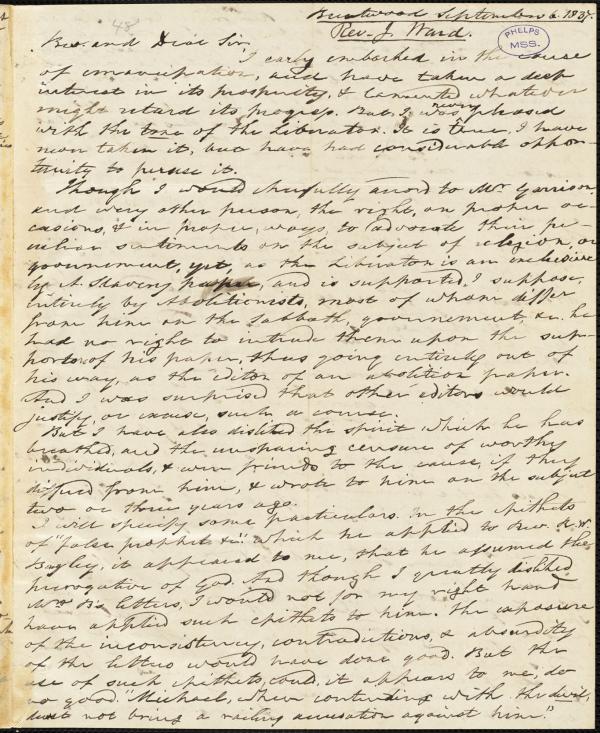 48
Brentwood September 6. 1837.
Rev. J. Ward.
PHELPS
MSS.
Rev and Dear Sir,
I early embarked in the cause
of emancipation, and have taken a deep
interest in its prosperity, & lamented whatever
might retard its progress. But I was never pleased
with the tone of the Liberator. It is true, I have
never taken it, but have had considerable oppor-
tunity to peruse it.
Though I would cheerfully accord to Mr Garrison
and every other person, the right, on proper oc-
casions, & in proper, ways, to advocate their pe-
culiar sentiments on the subject of religion, or
government, yet, as the Liberator is an exclusive
ly A. Slavery paper, and is supported, I suppose,
entirely by Abolitionists, most of whom differ
from him on the Sabbath, government, &c. he
had no right to intrude them upon the sup-
porters of his paper, thus going entirely out of
his way, as the editor of an abolition paper.
And I was surprised that other editors would
justify, or excuse, such a course.
But I have also disliked the spirit which he has
breathed, and the unsparing censure of worthy
individuals, & even friends to the cause, if they
differed from him, & wrote to him on the subject
two or three years ago.
I will specify some particulars. In the epithets
of "false prophet &c." which he applied to Rev.
Bagley, it appeared to me, that he assumed the
prerogative of God. And though I greatly disliked
Mr. B's letters, I would not for my right hand
have applied such epithets to him. The exposure
of the inconsistency, contradictions, & absurdity
of the letters would have done good. But the
use of such epithets, could, it appears to me, do
no good. "Michael, when contending with the devil,
durst not bring a railing accusation against him."